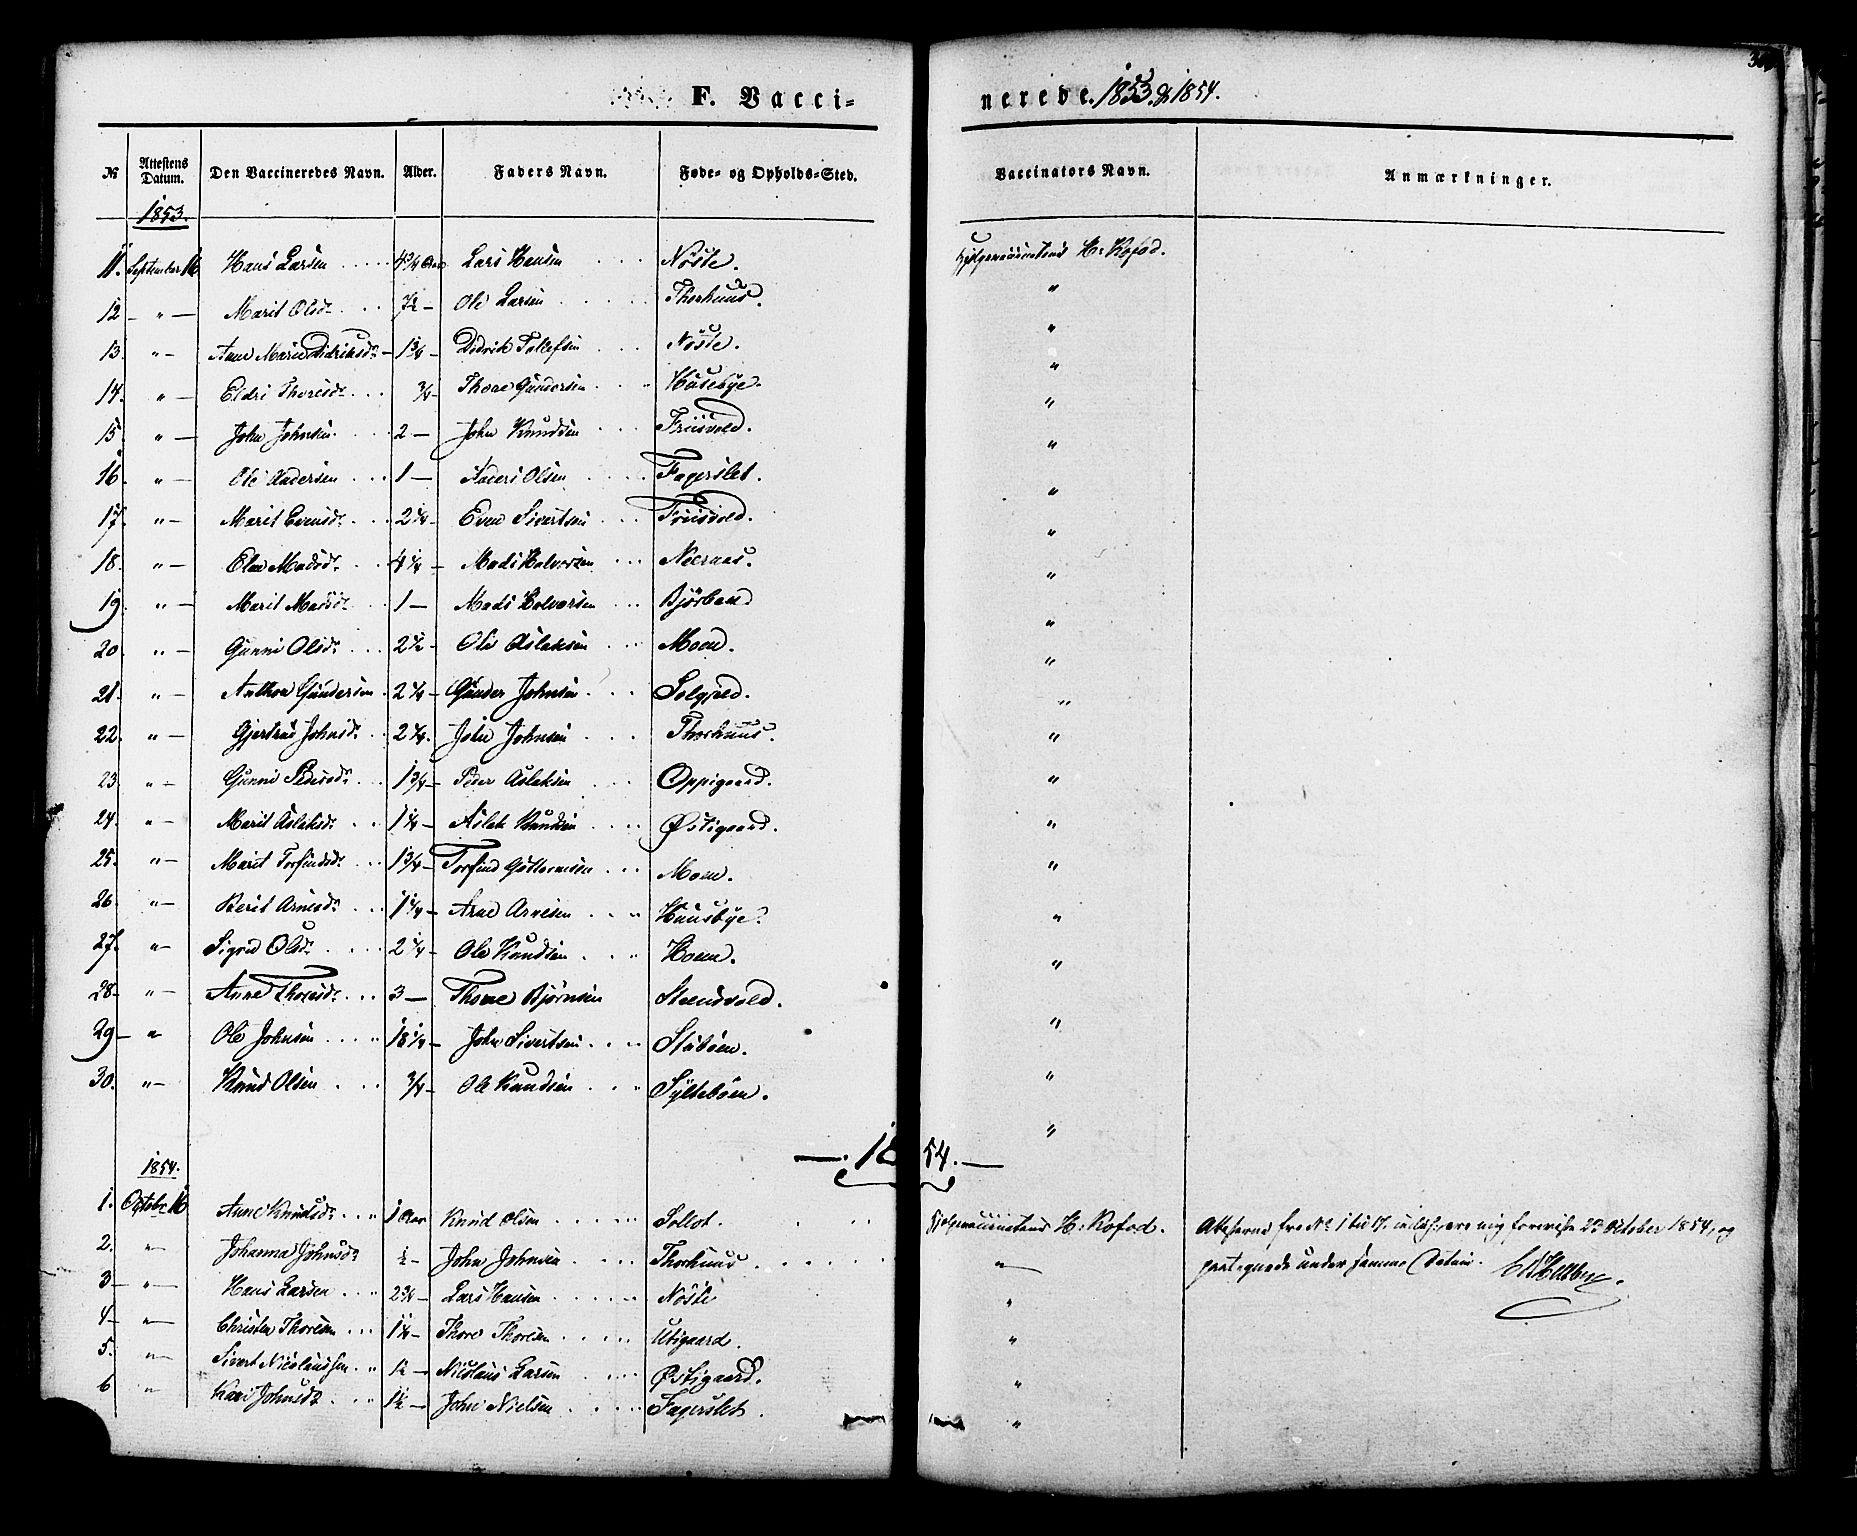 F. Vacci-
nerede. 1853 & 1854.
№ Attestens Datum. Den Vaccineredes Navn. Alder. Faders Navn. Føde- og Opholds-Sted. Vaccinators Navn. Anmærkninger.
1853.
11. September 16 Hans Larsen 4 3/4 Aar Lars Hansen Nöste. H: Kofod.
12 " — Marit Olsdr 7 1/2 — Ole Larsen Thorhuus. "
13. " — Anne Marie Didriksdr 1 3/4 — Didrik Tollefsen Nöste. "
14. " — Eldri Thoresdr 3/4 — Thore Gundersen Husebye. "
15 " — John Johnsen 2 — John Knudsen Friisvold. "
16. " — Ole Andersen 1 — Anders Olsen Fagerslet. "
17. " — Marit Evensdr 2 1/4 — Even Sivertsen Friisvold. "
18. " — Madsdr 4 1/4 — Mads Halvorsen "
19. " — Marit Madsdr 1 — Mads Halvorsen "
20. " — Gunni Olsdr 2 1/2 — Ole Aslaksen Moen. "
21. " — Anthon Gundersen 2 1/4 — Gunder Johnsen Solgjeld. "
22. " — Gjertrud Johnsdr 2 1/4. John Johnsen Thorhuus. "
23. " — Gunni Pedersdr 1 3/4 — Peder Aslaksen Oppigaard. "
24. " — Marit Aslaksdr 1 1/4 — Aslak Knudsen Østigaard. "
25. " — Marit Torfindsdr 1 3/4 — Torfind Guttormsen Moen. "
26. " — Berit Arnesdr 1 1/4 — Arne Arnesen Huusbye. "
27. " — Sigrid Olsdr 2 1/4 — Ole Knudsen Hoem. "
28 — " — Anne Thoresdr 3 — Thore Bjørnsen "
29 — " Ole Johnsen 18 1/4 — John Sivertsen Stuböen. "
30. " — Knud Olsen 3/4 — Ole Knudsen Sylteböen. "
— . 1854. —
1854.
1. Octobr 16 Anne Knudsdr 1 Aar Knud Olsen Sollot. H: Kofod. Attesterne fra No 1 til 17. incl: ere mig foreviste 23 October 1854, og
2. " — Johanna Johnsdr 1/2 — John Johnsen Thorhuus " — paategnede under samme Datum.
3 — " — Hans Larsen 2 3/4 — Lars Hansen Nöste "
4 — " — Christen Thoresen 1 1/4 — Thore Thoresen Utigaard. "
5. " — Sivert Nicolaussen 1 1/2 — Nicolaus Larsen Østigaard. "
6 " Kari Johnsdr 1 1/2 — John Nielsen Fagerslet. "